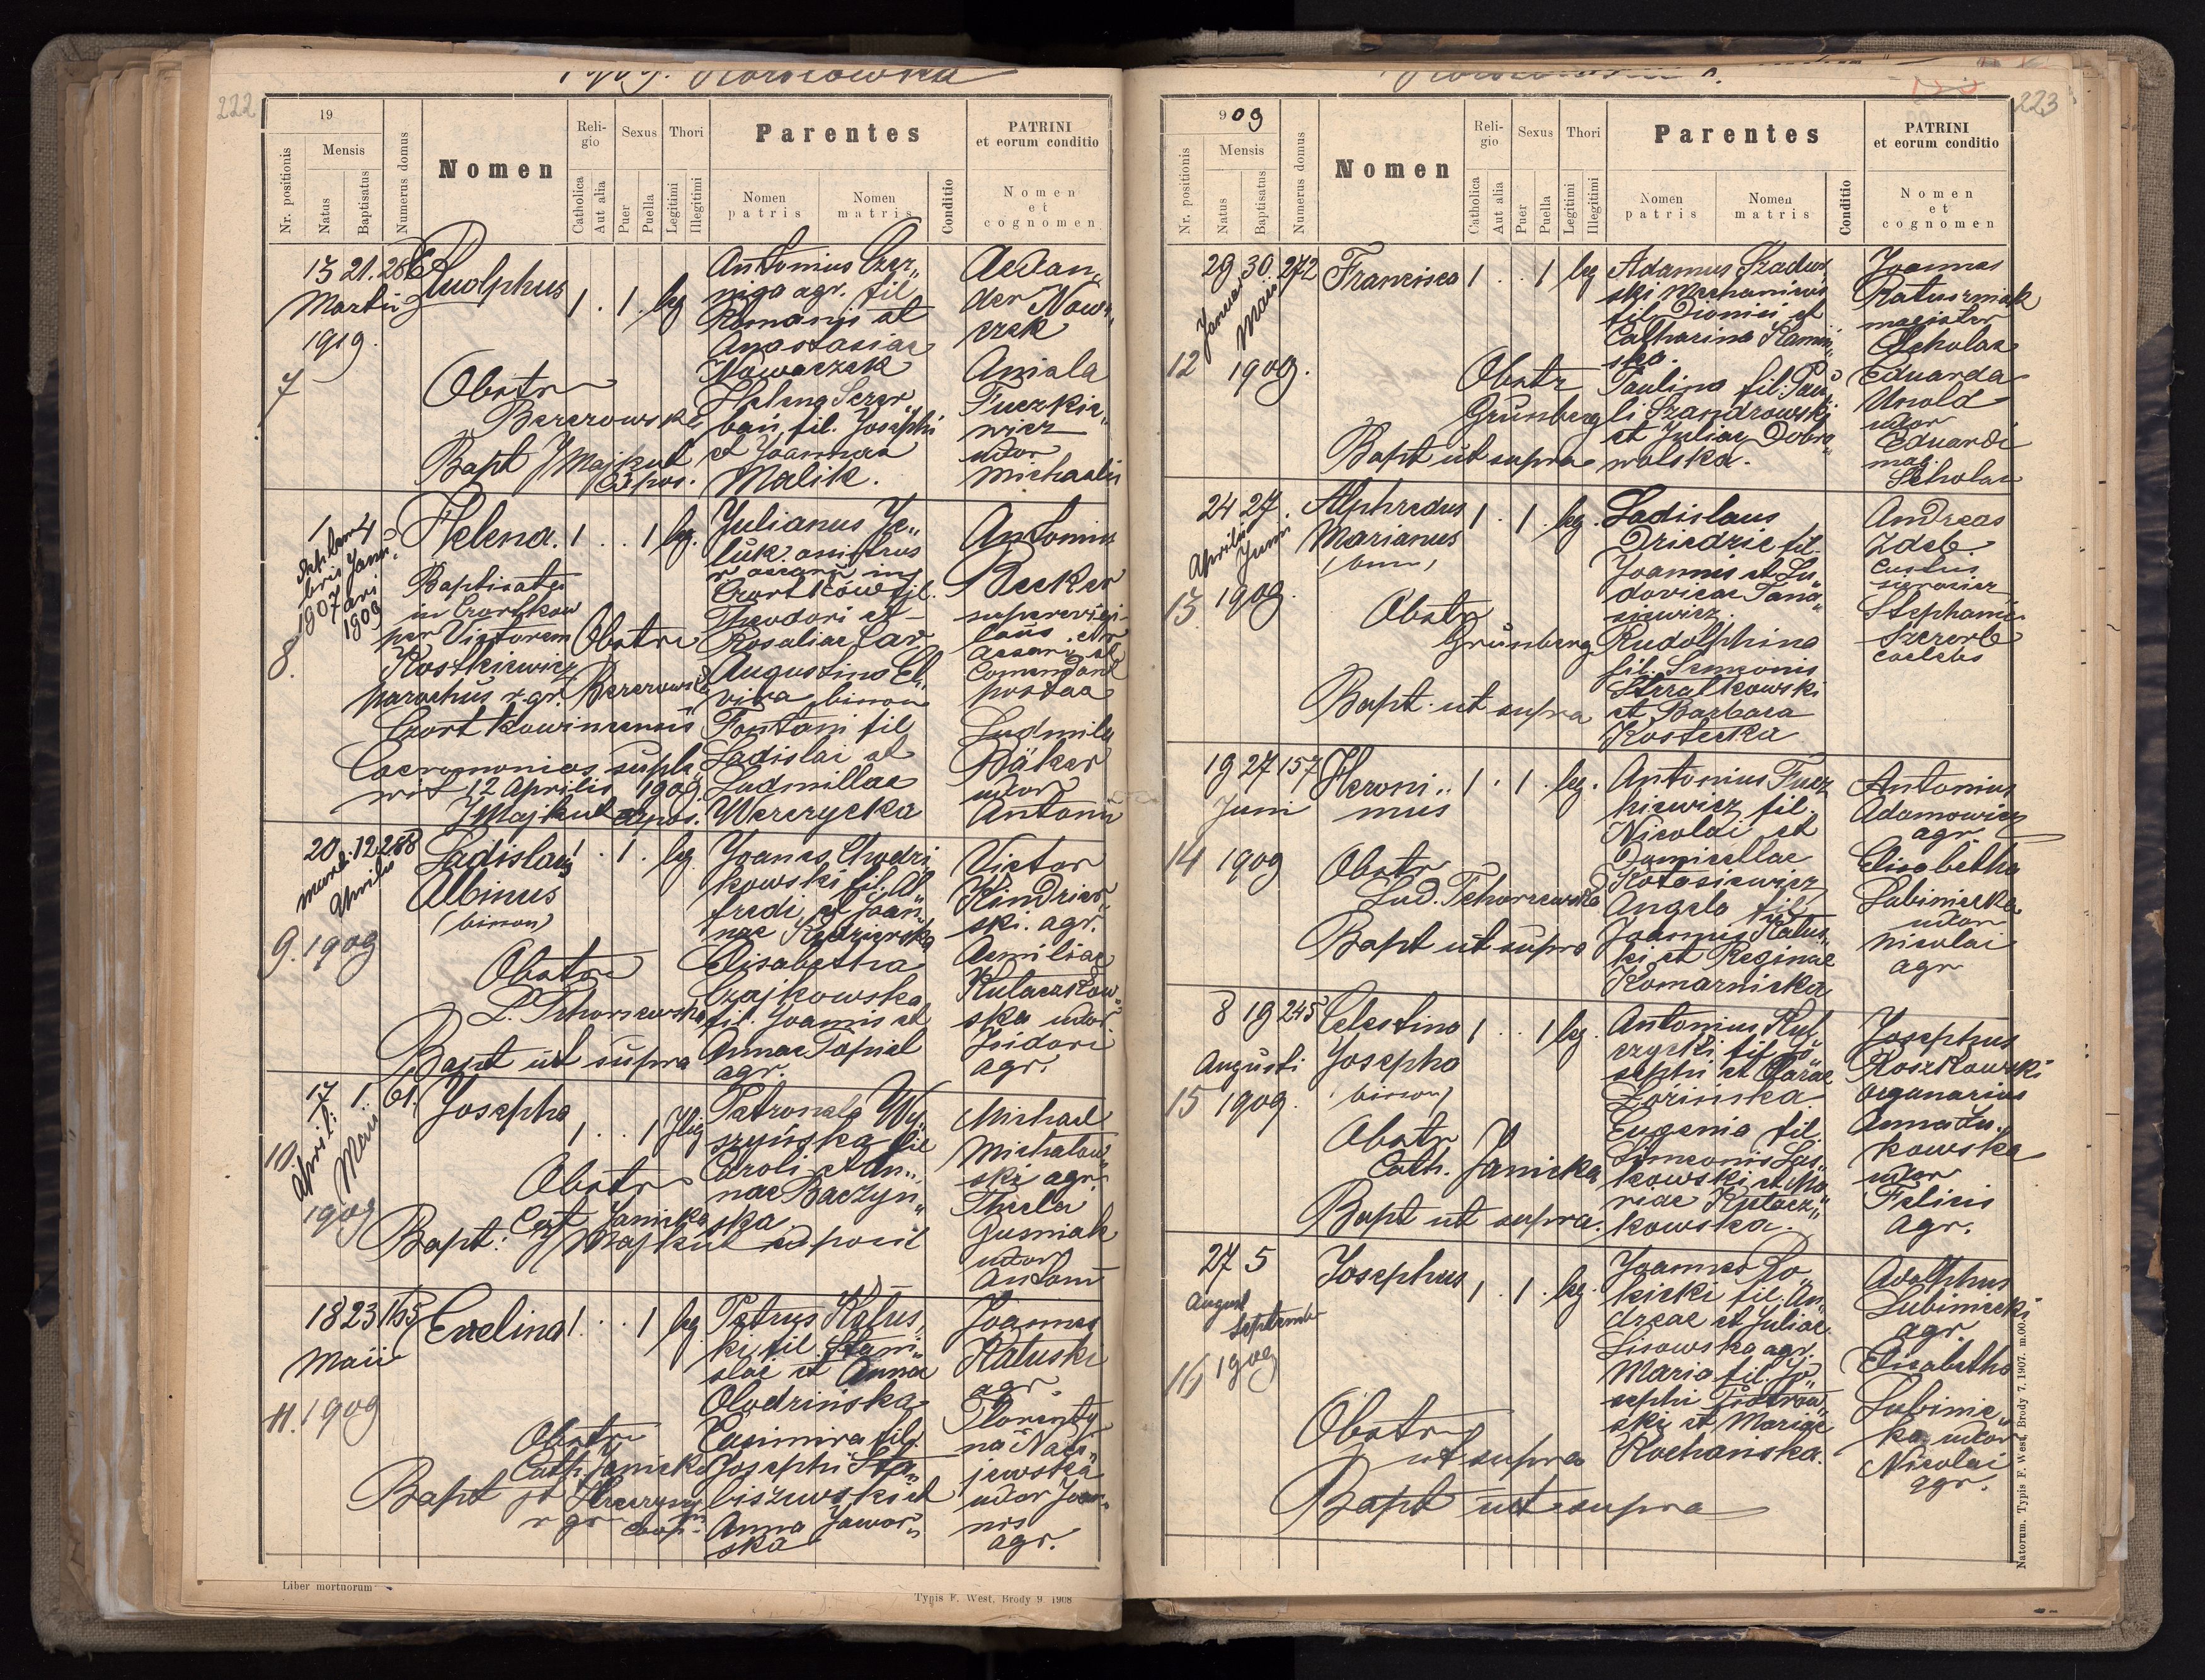 222
19
Mensis
Nr. positionis
Natus
Baptisatus
Numerus domus
Nomen
Religio
Catholica
Aut alia
Sexus
Puer
Puella
Thori
Legitimi
Illegitimi
Parentes
Nomen patris
Nomen matris
Conditio
PATRINI
et eorum conditio
Nomen
et
cognomen
7
15 21. 286
Martii
1919.
Rudolphus
1 . 1 . leg
Obstr
Berezowska
Bapt J Majkut
Expos.
Antonius Czer„
niga agr. fil
Romani et
Anastasiae
Nowaczek
Helena Szcer„
bań, fil. Josephi
et Joannae
Malik.
Nowa„
czek
Aniela
Fuczkie„
wicz
uxor
Michaelis
8.
1 4
1907
1909
Helena. 1 . . 1 leg.
Baptisata
in Czortkow
per Victorem
Kostkiewicz
parochus r. gr.
Czortkowinensis
Caeremonias suple„
vit 12 Aprilis 1909.
J Majkut expos.
Obstr
Berezowska
Julianus Je„
luk
Czortków fil.
Theodori et
Rosaliae
Augustina El„
vira binom
Fontani fil
Ladislai et
Ludmillae
Werezycka
Antonius
Becker
Comendant
postae
Ludmila
Bäker
uxor
Antonii
9.
20. 12 288
Aprilis
1909
Ladislaus
Albinus
(binom)
1 . 1 . leg
Obstr
L. Tchorzewska
Bapt ut supra
Joanes Chodzi
kowski fil. Al„
fredi et Joan„
nae Kędzierska
Elisabetha
Czajkowska
fil. Joannis et
Annae Topiel
agr.
Victor
Kindzier„
ski. agr.
Aemiliae
Kulaczkow„
ska uxor
Isidori
agr.
10
17 1. 61.
April: Maii
1909
Josepha
1 . . 1 Illeg
Obstr
Cat Janicka
Bapt: Majkut exposit
Petronela Wy„
szyńska fil
Caroli et An„
nae Baczyn„
ska
Michael
Michalow„
ski agr.
Thecla
Gusniak
uxor
Antonii
11.
18 23 165
Maii
1909
Evelina 1 . . 1 leg
Obstr
Cath. Janicka
Bapt
Petrus Katus„
ki, fil Stani„
slai et Anna
Olodzińska
Casimira fil.
Josephi Sta„
biszewski et
Anna Jawor„
ska
Joannes
Katuski
agr.
Florenty„
na
jewska
uxor Joan„
nis
agr.
Liber mortuorum
Typis F. West, Brody 9. 1908
223
909
Mensis
Nr. positionis
Natus
Baptisatus
Numerus domus
Nomen
Religio
Catholica
Aut alia
Sexus
Puer
Puella
Thori
Legitimi
Illegitimi
Parentes
Nomen patris
Nomen matris
Conditio
PATRINI
et eorum conditio
Nomen
et
cognomen
12
29 30. 272
Januar Maii
1909.
Francisca 1 . . 1 leg
Obstr
Grünberg
Bapt ut supra
Adamus Szadur
ski Mechanicus
fil. Dionisi et
Catharina Kamin„
ska.
Paulina fil: Pau„
li Szandrowski
et Juliae Dobro„
wolska.
Joannes
Ratuszniak
magister
Scholae
Eduarda
Unold
uxor
Eduardi
mag.
Scholae
13
24 27.
Aprilis Junii
1909.
Alphredus
Marianus
1 . 1 . leg.
Obstr
Grünberg
Bapt. ut supra
Ladislaus
Dziedzic fil.
Joannes et Lu„
dovicae Tana„
siewicz.
Rudolphina
fil. Semeonis
Strzałkowski
et Barbara
Kostecka
Andreas
Zdeb.
Stephania
Szczerb
caelebs
14
19 27 157
Juni
1909
Heroni„
mus
1 . 1 . leg.
Obstr
Lud. Tchorzewska
Bapt ut supra
Antonius Fucz
kiewicz fil.
Nicolai et
Domicellae
Kotasiewicz
Angela fil
Joannis Katus„
ki et Reginae
Komarnicka
Antonius
Adamowicz
agr
Elisabetha
Lubiniecka
uxor
Nicolai
agr
15
8 19 245
Augusti
1909.
Celestina
Josepha
(binom)
1 . . 1 leg.
Obstr
Cath. Janicka
Bapt ut supra.
Antonius Kul„
czycki fil Jo„
sephi et Clarae
Zórińska
Eugenia fil.
Simeonis Las„
kowski et Ma„
riae Kulacz„
kowska.
Josephus
Koszkowski
organarius
Anna Lu.
kowska
uxor
Felicis
agr.
16
27 5
August
Septemb
1909
Josephus
1 . 1 . leg.
Obstr
ut supra
Bapt ut supra
Joannes Ro„
kicki fil. An„
dreae et Juliae
Lisowska agr.
Maria fil. Jo„
sephi Piotrow„
ski et Mariae
Kochanska.
Adolphus
Lubiniecki
agr.
Elisabetha
Lubinie„
ka uxor
Nicolai
agr.
Natorum. Typis F. West, Brody 7. 1907. m.00.